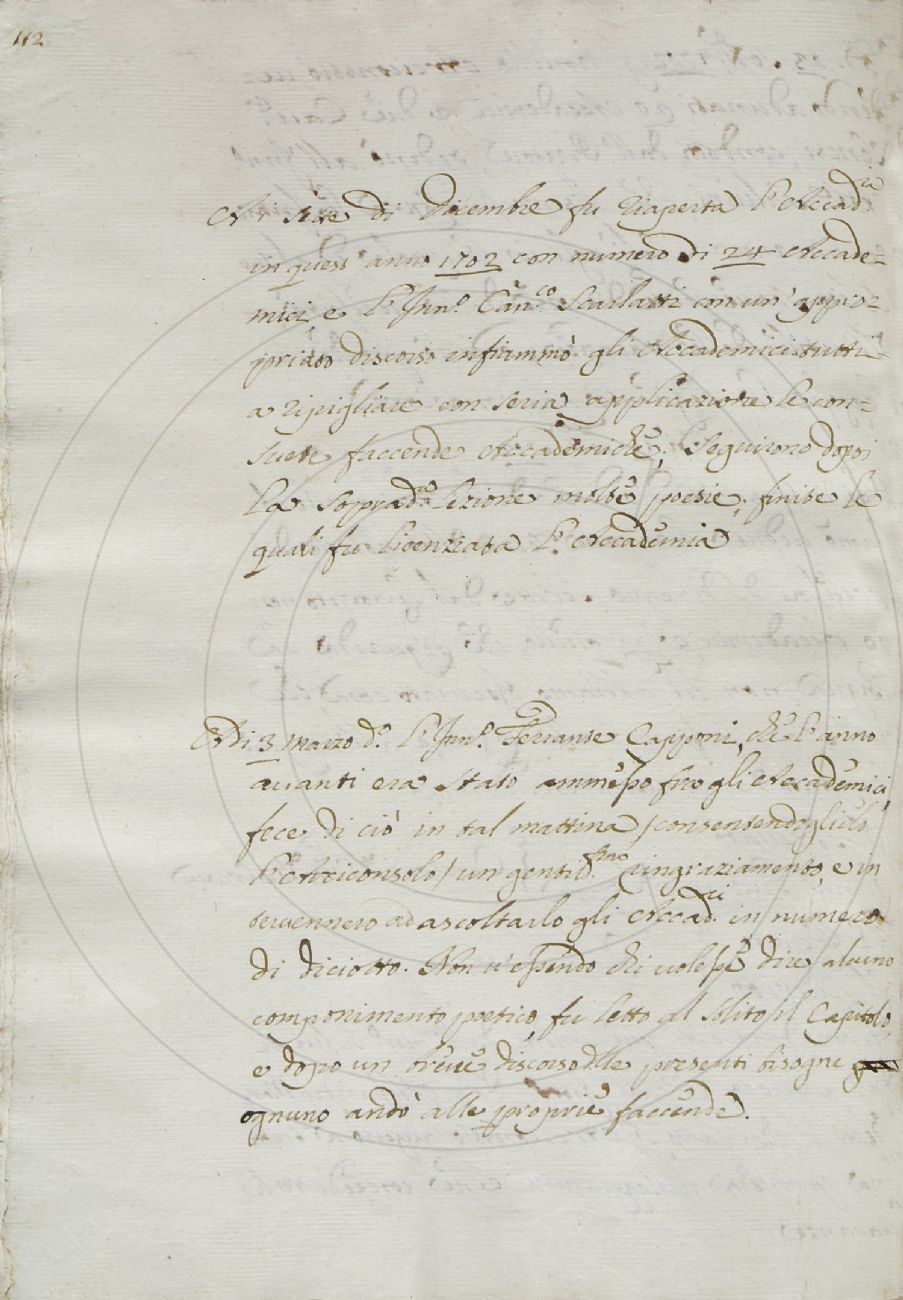 112
A i sette di Dicembre fu riaperta l'Accad.ia
in quest'anno 1702 con numero di 24 Accade=
mici e l'Inn.o Can.co Scarlatti con un'appro=
priato discorso infiammò gli Accademici tutti
a ripigliare con seria applicazione le con=
suete faccende Accademiche. Seguirono dopoi
la soprad.a lezione molte poesie, finite le
quali fu licenziata l'Accademia
Adi 3 Marzo d.o l'Inn.o Ferrante Capponi, che l'anno
avanti era stato ammesso fra gli Accademici,
fece di ciò in tal mattina /consentendoglielo
l'Arciconsolo/ un gentil.mo ringraziamento, e in
tervennero ad ascoltarlo gli Accad.ci in numero
di diciotto. Non v'essendo chi volesse dire alcuno
componimento poetico, fu letto al solito il Capitolo,
e dopo un breve discorso delle presenti bisogne
ognuno andò alle proprie faccende.